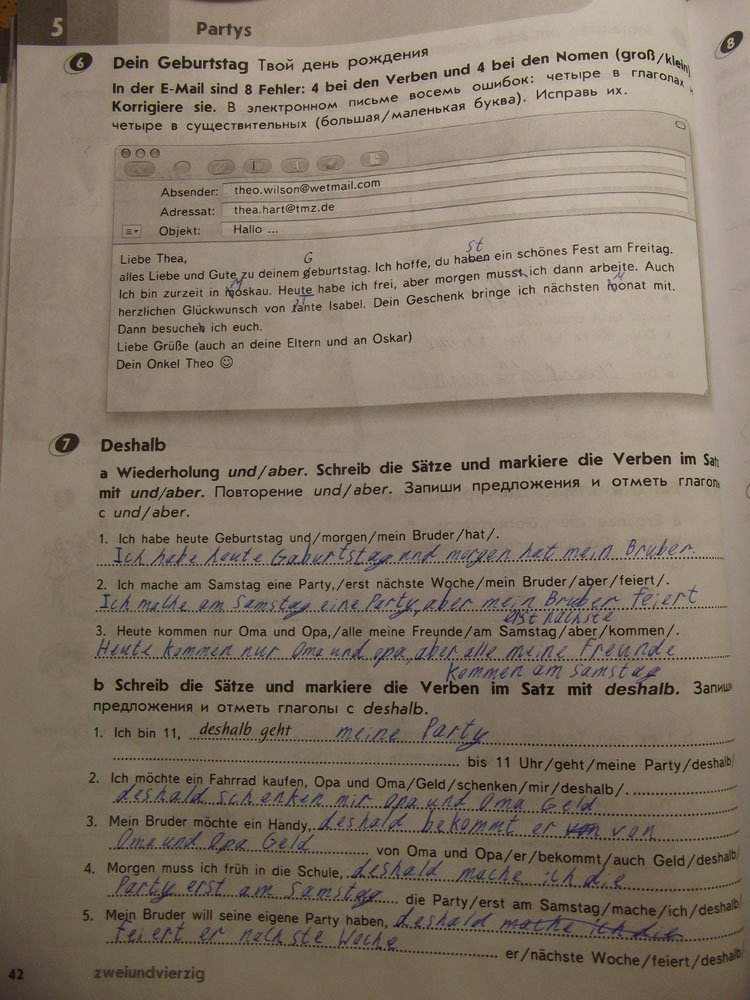 5 Partys
6 Dein Geburtstag Твой день рождения
In der E-Mail sind 8 Fehler: 4 bei den Verben und 4 bei den Nomen (groß/klein)
Korrigiere sie. В электронном письме восемь ошибок: четыре в глаголах и
четыре в существительных (большая/маленькая буква). Исправь их.
8
Absender: theo.wilson@wetmail.com
Adressat: thea.hart@tmz.de
Objekt: Hallo ...
Liebe Thea,
G st
alles Liebe und Gute zu deinem geburtstag. Ich hoffe, du haben ein schönes Fest am Freitag.
M M
Ich bin zurzeit in moskau. Heute habe ich frei, aber morgen musst ich dann arbeite. Auch
T
herzlichen Glückwunsch von tante Isabel. Dein Geschenk bringe ich nächsten monat mit.
Dann besuchen ich euch.
Liebe Grüße (auch an deine Eltern und an Oskar)
Dein Onkel Theo
7 Deshalb
a Wiederholung und/aber. Schreib die Sätze und markiere die Verben im Satz
mit und/aber. Повторение und/aber. Запиши предложения и отметь глаголы
с und/aber.
1. Ich habe heute Geburtstag und/morgen/mein Bruder/hat/.
Ich habe heute Gaburtstag und morgen hat mein Bruber.
2. Ich mache am Samstag eine Party,/erst nächste Woche/mein Bruder/aber/feiert/.
Ich mache am Samstag eine Party, aber mein Bruber feiert
erst nächste
3. Heute kommen nur Oma und Opa,/alle meine Freunde/am Samstag/aber/kommen/.
Heute kommen nur Oma und opa, aber alle meine Freunde
kommen am Samstag
b Schreib die Sätze und markiere die Verben im Satz mit deshalb. Запиши
предложения и отметь глаголы с deshalb.
1. Ich bin 11, deshalb geht meine Party
bis 11 Uhr/geht/meine Party/deshalb/
2. Ich möchte ein Fahrrad kaufen, Opa und Oma/Geld/schenken/mir/deshalb/.
deshald schenken mir Opa und Oma Geld
3. Mein Bruder möchte ein Handy, deshald bekommt er von von
Oma und Opa Geld von Oma und Opa/er/bekommt/auch Geld/deshalb/
4. Morgen muss ich früh in die Schule, deshald mache ich die
Party erst am Samstag die Party/erst am Samstag/mache/ich/deshalb/
5. Mein Bruder will seine eigene Party haben, deshald mache ich die
feiert er nächste Woche er/nächste Woche/feiert/deshalb/
42 zweiundvierzig